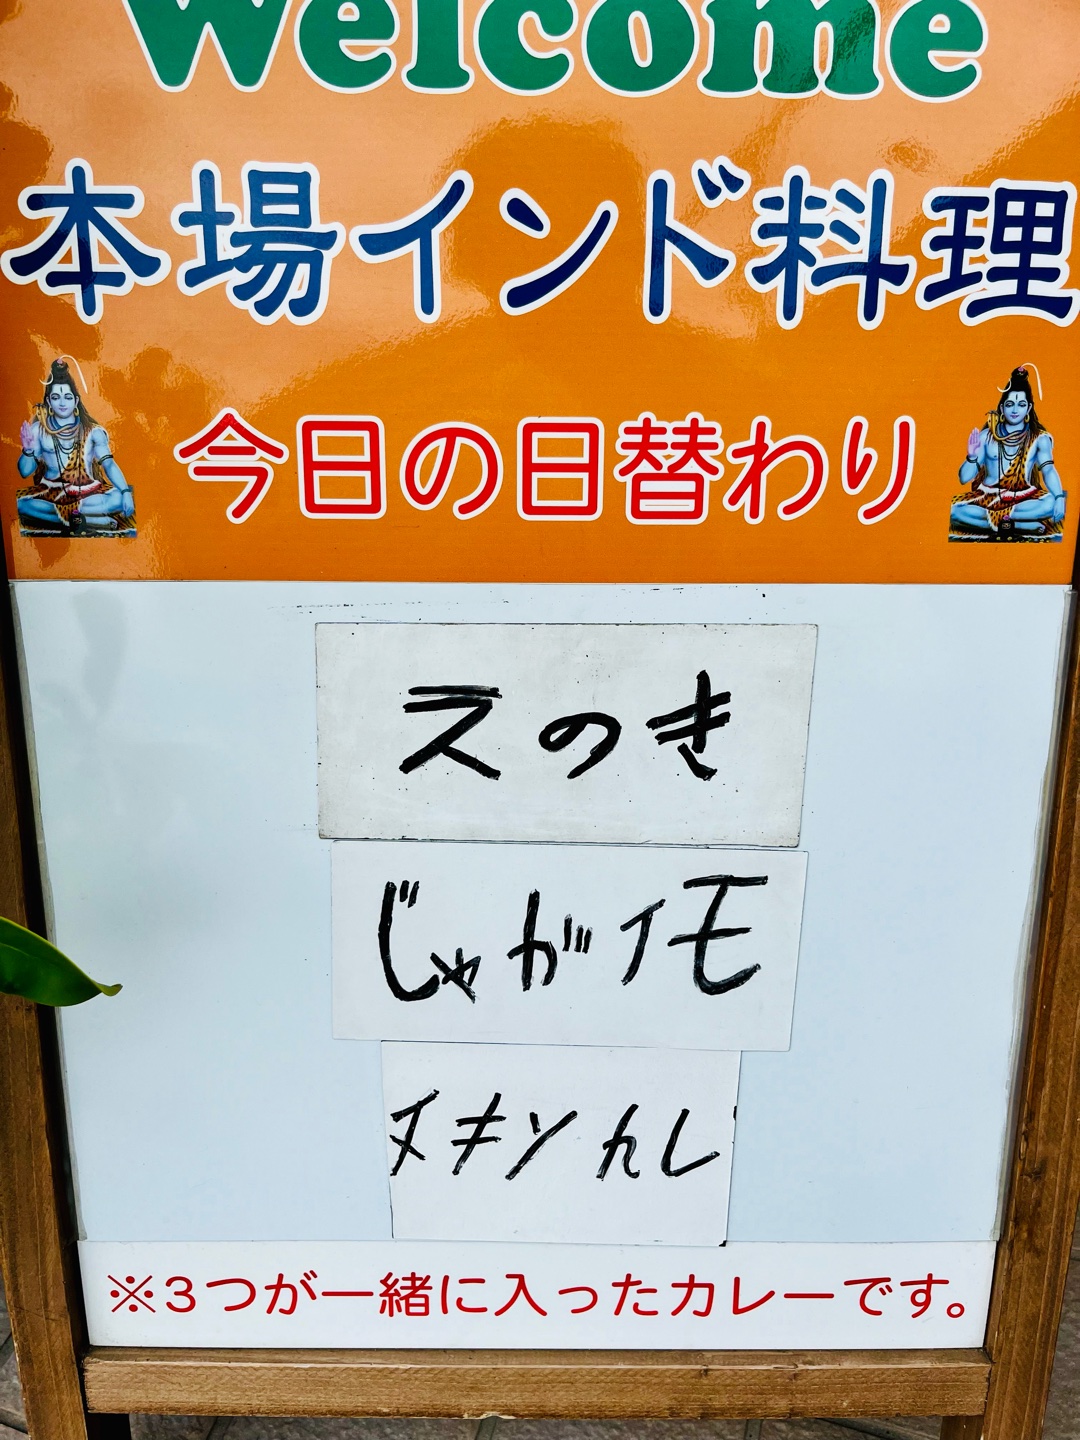 Welcome
本場インド料理
今日の日替わり
えのき
じゃがイモ
ヌキンカレ
※3つが一緒に入ったカレーです。